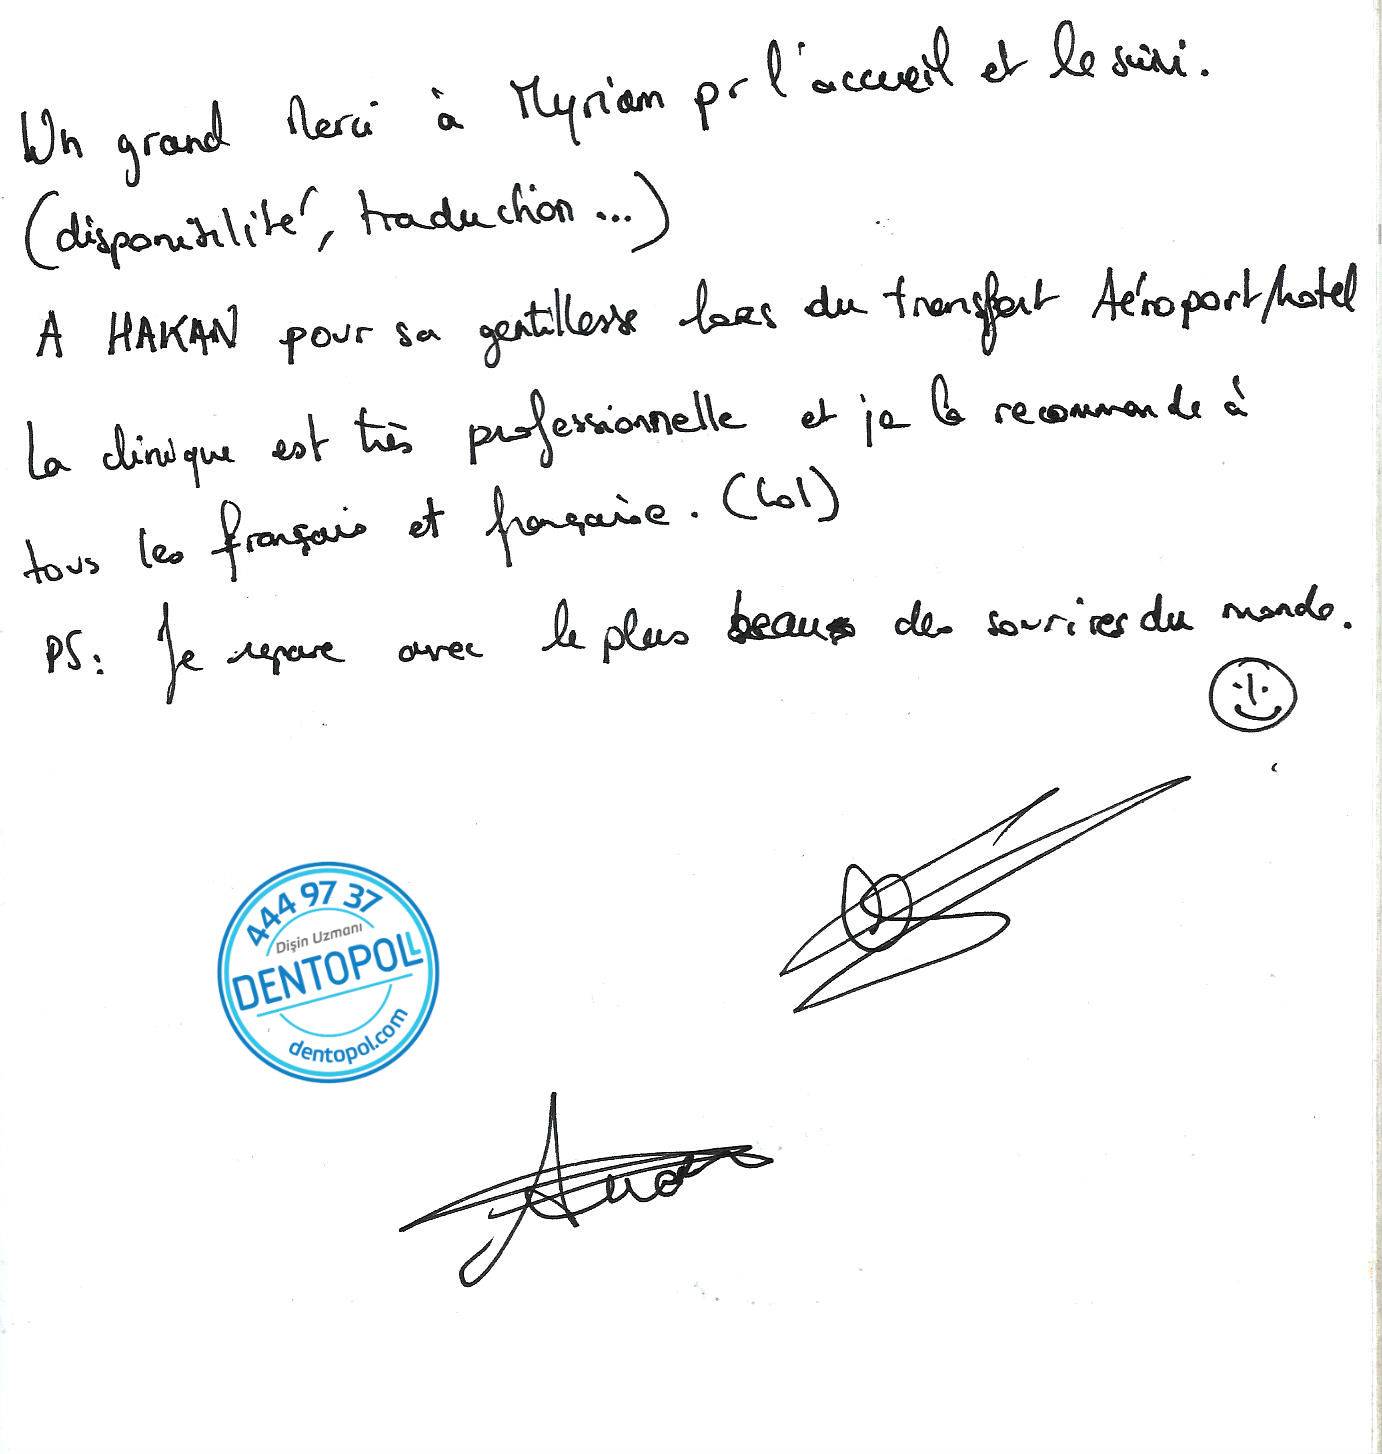 Un grand Merci à Myriam pr l'accueil et le suivi.
(disponibilité, traduction ...)
A HAKAN pour sa gentillesse lors du transfert Aéroport/hotel
La clinique est très professionnelle et je la recommande à
tous les français et française. (lol)
PS: Je repare avec le plus beaus des sourires du monde.
444 97 37
Dişin Uzmanı
DENTOPOLL
dentopol.com